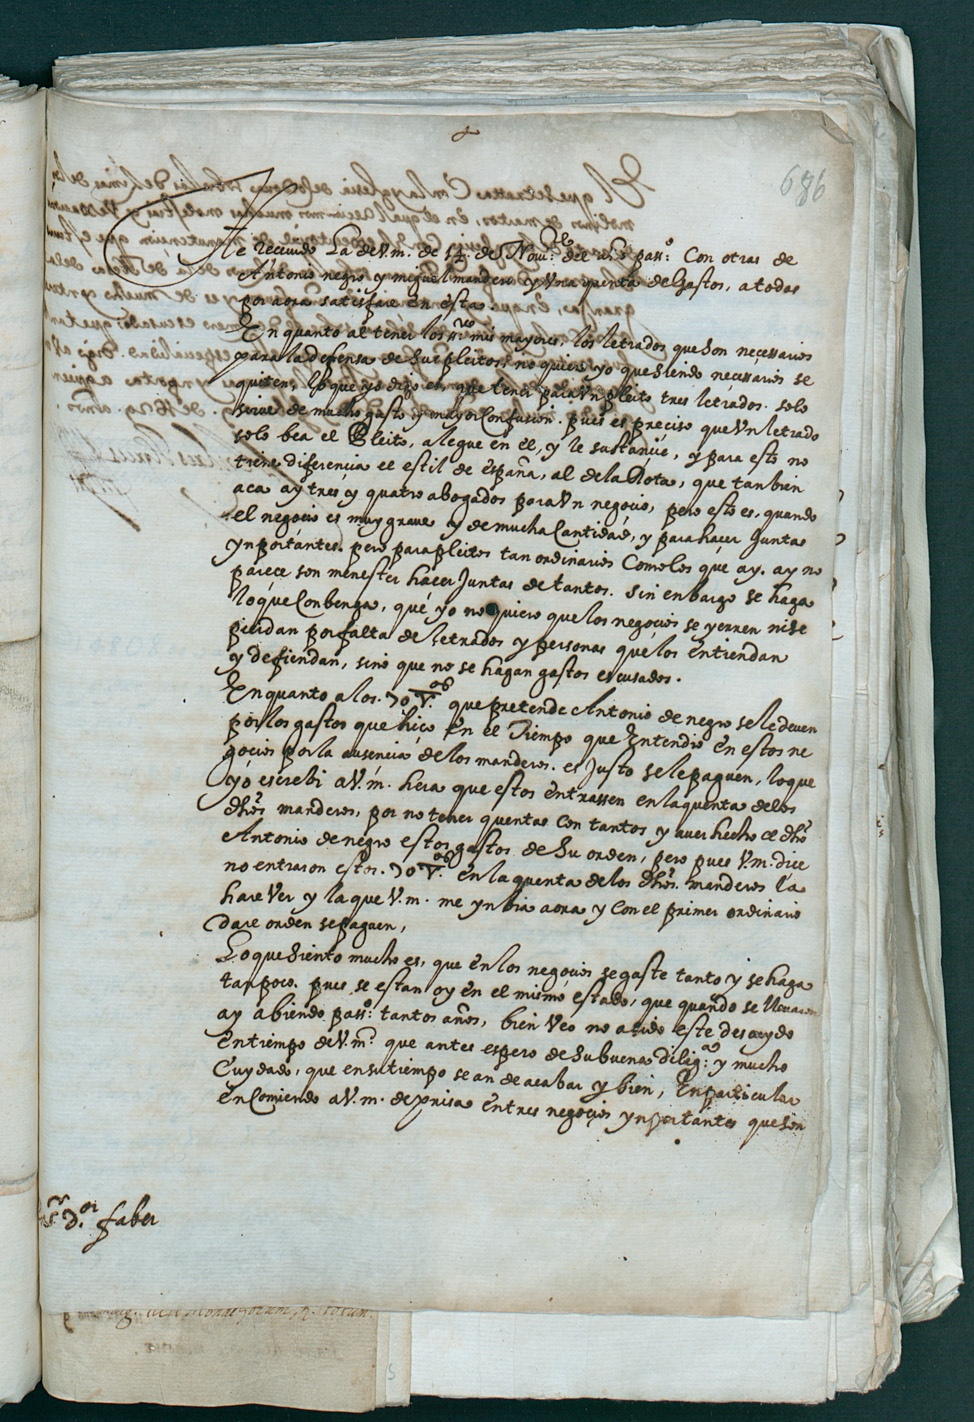 686
He recevido La de V.m. de 14. de Nov.e del año pass.o Con otras de
Antonio negro y miguel mandero y Una quenta de Gastos, a todas
por aora satisfare en esta.
En quanto al tener los mis mayores, los letrados que son necessarios
para la defensa de sus pleitos, no quiero yo que siendo necessarios se
quiten, lo que yo digo es, que tener para Vn pleito tres letrados. solo
sirve de mucho gasto y mayor Confusion. pues es preciso que Vn letrado
solo bea el Pleito, alegue en el, y le sustançie, y para esto no
tiene diferencia el estil de españa, al de la Rota, que tanbien
aca ay tres y quatro abogados para Vn negocio, pero esto es, quando
el negocio es muy grave y de mucha Cantidad, y para hacer Juntas
ynportantes. pero para pleitos tan ordinarios Como los que ay. ay no
parece son menester hacer Juntas de tantos. sin enbargo se haga
lo que Conbenga, que yo no quiero que los negocios se yerren ni se
pierdan por falta de letrados y personas que los entiendan
y defiendan, sino que no se hagan gastos escusados.
En quanto a los. 70 V.os que pretende Antonio de negro se le deven
por los gastos que hiço En el Tiempo que Entendio En estos ne
gocios por la ausencia de los manderos. es Justo se le paguen, lo que
yo escrebi a V.m. hera que estos entrassen en la quenta de los
dhos. manderos, por no tener quentas Con tantos y aver hecho el dho
Antonio de negro estos gastos de su orden, pero pues V.m. dice
no entraron estos. 70 V.os En la quenta de los dhos. manderos la
hare Ver y la que V.m. me ynbia aora y Con el primer ordinario
dare orden se paguen,
Lo que siento mucho es, que en los negocios se gaste tanto y se haga
tan poco. pues se estan oy en el mismo estado, que quando se llevaron
ay abiendo pass.o tantos años, bien Veo no a sido este descuydo
En tiempo de V.m. que antes espero de su buena dilig.a y mucho
Cuydado, que en su tiempo se an de acabar y bien, En particular
enComiendo a V.m. de prisa en tres negocios ynportantes que son
S.r D.or faber